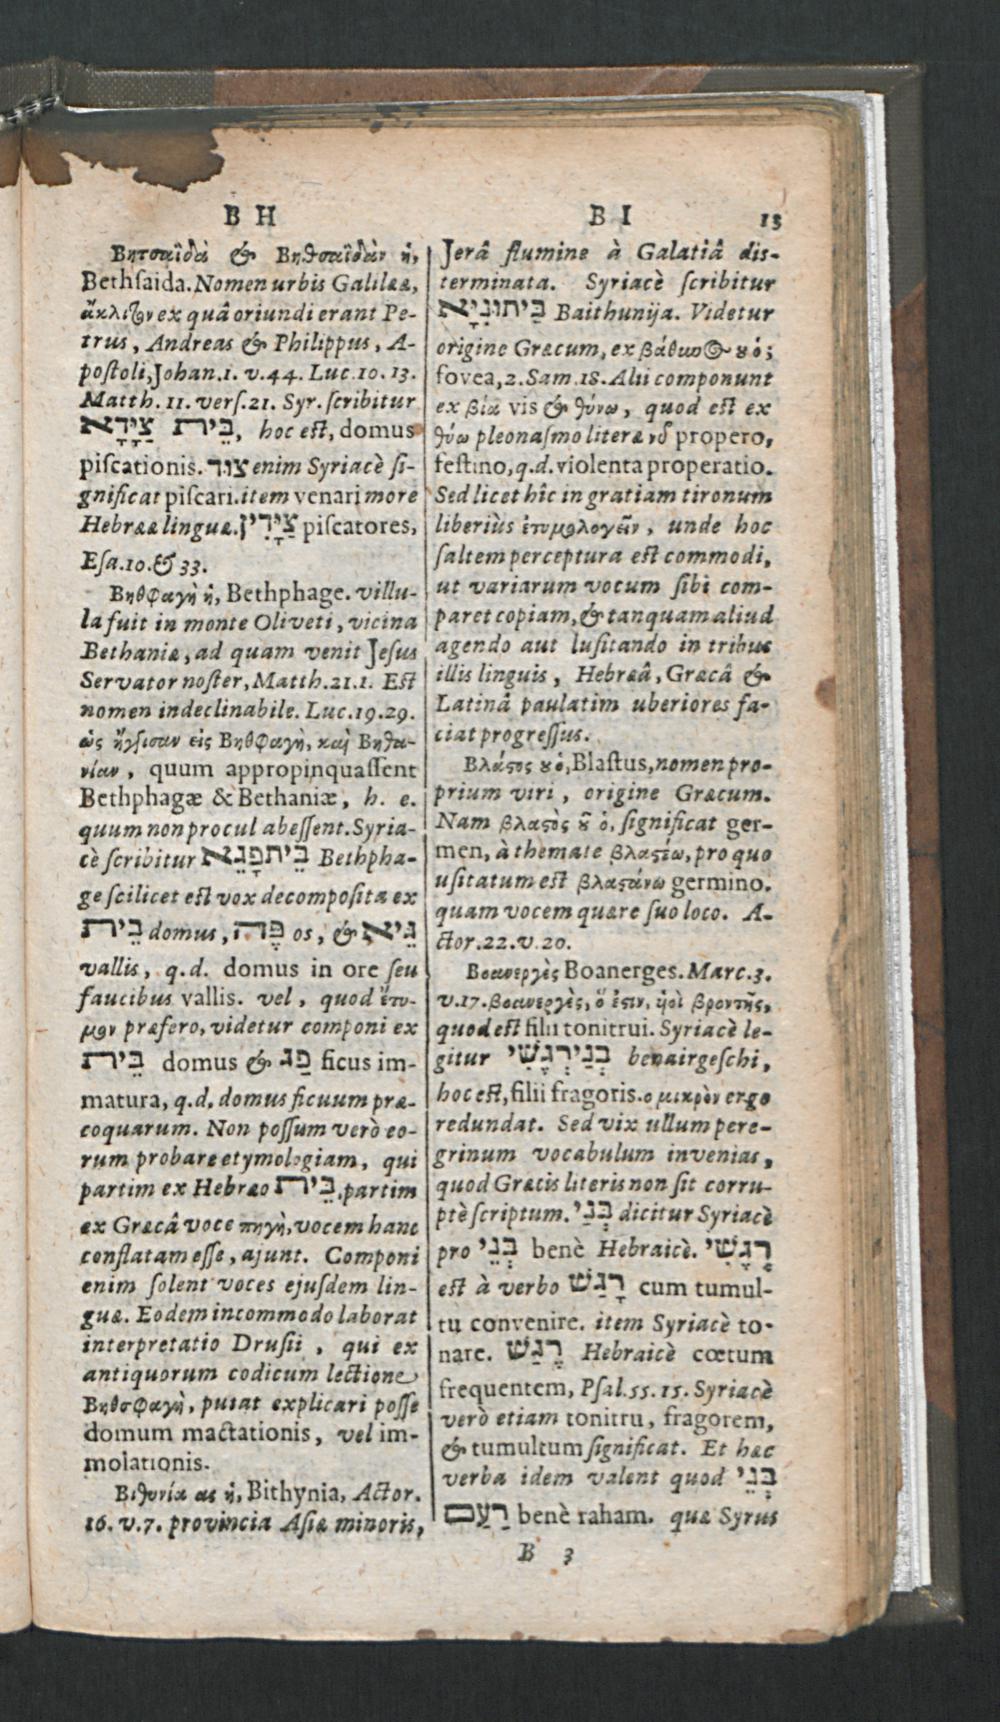 B H
Βητσαϊδὰ & Βηθσαϊδὰν ἡ,
Bethſaida. Nomen urbis Galilææ,
ἄκλιτον ex quâ oriundi erant Pe-
trus, Andreas & Philippus, A-
poſtoli, Johan. 1. v. 44. Luc. 10. 13.
Matth. 11. verſ. 21. Syr. ſcribitur
בֵּית צַיָּדָא, hoc eſt, domus
piſcationis. צוּד enim Syriacè ſi-
gnificat piſcari. item venari more
Hebrææ linguæ. צַיָּדִין piſcatores,
Eſa. 10. & 33.
Βηθφαγὴ ἡ, Bethphage. villu-
la fuit in monte Oliveti, vicina
Bethaniæ, ad quam venit Jeſus
Servator noſter, Matth. 21. 1. Eſt
nomen indeclinabile. Luc. 19. 29.
ὡς ἤγγισαν εἰς Βηθφαγὴ, καὶ Βηθα-
νίαν, quum appropinquaſſent
Bethphagæ & Bethaniæ, h. e.
quum non procul abeſſent. Syria-
cè ſcribitur בֵּיתפָגֵּא Bethpha-
ge ſcilicet eſt vox decompoſita ex
בֵּית domus, פֶּה os, & גֵּיא
vallis, q. d. domus in ore ſeu
faucibus vallis. vel, quod ἔτυ-
μον præfero, videtur componi ex
בֵּית domus & פַּג ficus im-
matura, q. d. domus ficuum præ-
coquarum. Non poſſum verò eo-
rum probare etymologiam, qui
partim ex Hebræo בֵּית, partim
ex Græcâ voce πηγὴ, vocem hanc
conflatam eſſe, ajunt. Componi
enim ſolent voces ejuſdem lin-
guæ. Eodem incommodo laborat
interpretatio Druſii, qui ex
antiquorum codicum lectione
Βηθσφαγὴ, putat explicari poſſe
domum mactationis, vel im-
molationis.
Βιθυνία ας ἡ, Bithynia, Actor.
16. v. 7. provincia Aſiæ minoris,
B I 13
Jerâ flumine à Galatiâ diſ-
terminata. Syriacè ſcribitur
בַּיתוּנִיָא Baithunija. Videtur
origine Græcum, ex βάθυνος ου ὁ;
fovea, 2. Sam. 18. Alii componunt
ex βία vis & θύνω, quod eſt ex
θύω pleonaſmo literæ νῦ propero,
feſtino, q. d. violenta properatio.
Sed licet hîc in gratiam tironum
liberiùs ἐτυμολογεῖν, unde hoc
ſaltem perceptura eſt commodi,
ut variarum vocum ſibi com-
paret copiam, & tanquam aliud
agendo aut luſitando in tribus
illis linguis, Hebræâ, Græcâ &
Latinâ paulatim uberiores fa-
ciat progreſſus.
Βλάστος ου ὁ, Blaſtus, nomen pro-
prium viri, origine Græcum.
Nam βλαστὸς οῦ ὁ, ſignificat ger-
men, à themate βλαστέω, pro quo
uſitatum eſt βλαστάνω germino.
quam vocem quære ſuo loco. A-
ctor. 22. v. 20.
Βοανεργὲς Boanerges. Marc. 3.
v. 17. βοανεργὲς, ὅ ἐστιν, υἱοὶ βροντῆς,
quod eſt filii tonitrui. Syriacè le-
gitur בְּנַירְגָשִׁי benairgeſchi,
hoc eſt, filii fragoris. ο μικρὸν ergo
redundat. Sed vix ullum pere-
grinum vocabulum invenias,
quod Græcis literis non ſit corru-
ptè ſcriptum. בְּנַי dicitur Syriacè
pro בְּנֵי benè Hebraicè. רֶגָשִׁי
eſt à verbo רָגַשׁ cum tumul-
tu convenire. item Syriacè to-
nare. רֶגַשׁ Hebraicè cœtum
frequentem, Pſal. 55. 15. Syriacè
verò etiam tonitru, fragorem,
& tumultum ſignificat. Et hæc
verba idem valent quod בְּנֵי
רַעַם benè raham. quæ Syrus
B 3